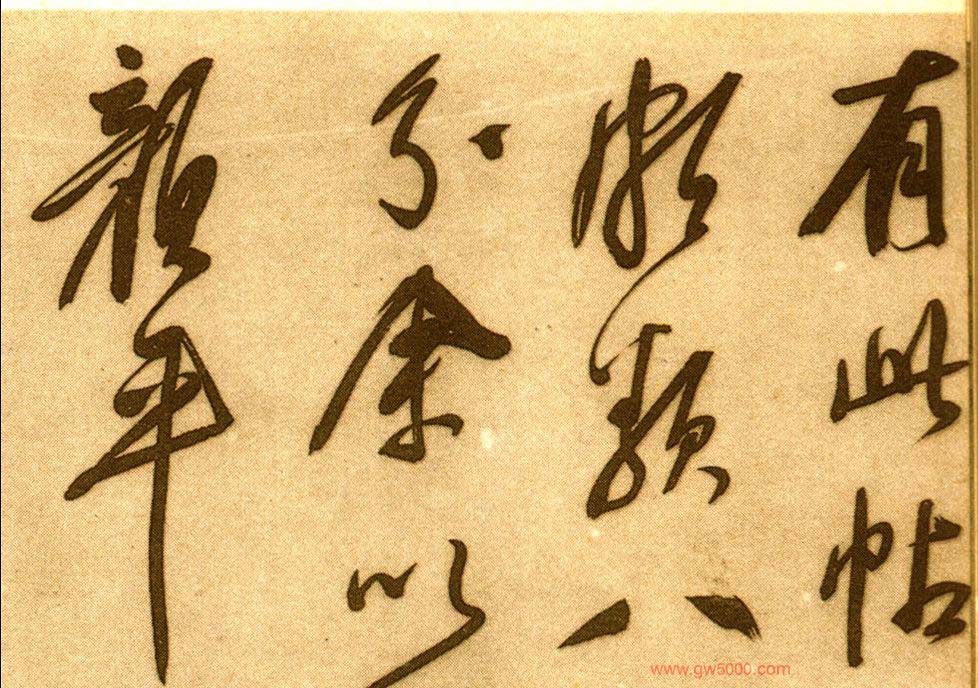 有此帖
頗類八
分余以
親年
www.gw5000.com